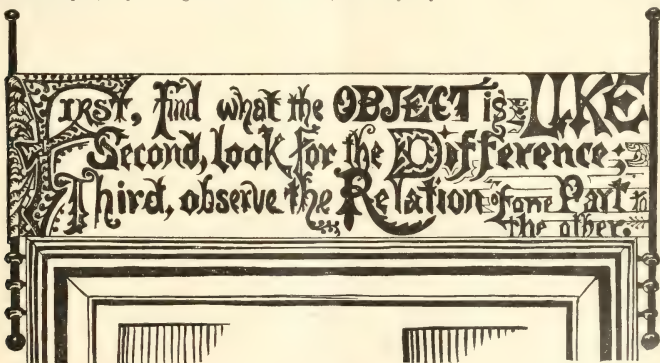 First, find what the OBJECT is LIKE
Second, look for the Difference;
Third, observe the Relation of one Part to
the other.